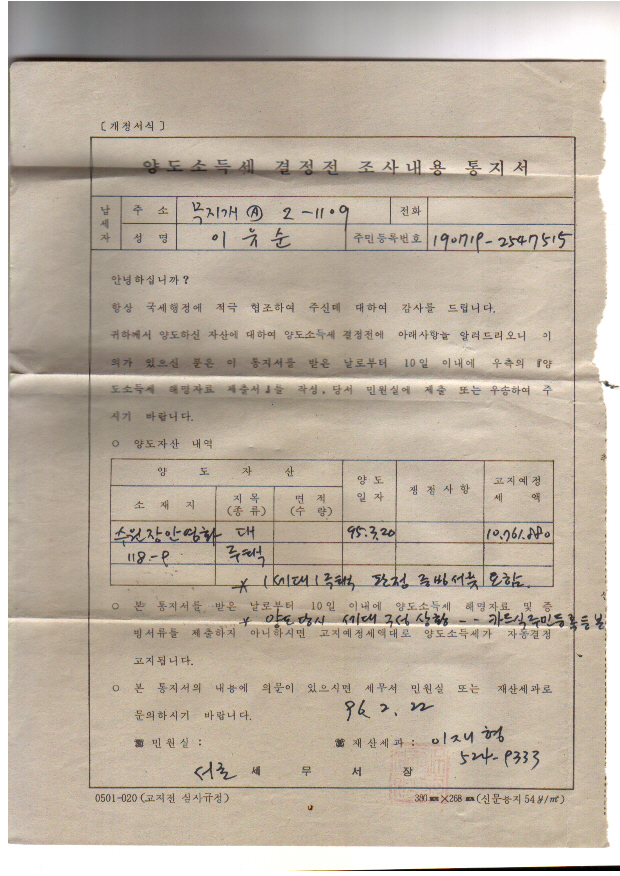 [개정서식]
양도소득세 결정전 조사내용 통지서
납세자 주소 무지개 Ⓐ 2-1109 전화
성명 이유순 주민등록번호 190719-2547515
안녕하십니까?
항상 국세행정에 적극 협조하여 주신데 대하여 감사를 드립니다.
귀하께서 양도하신 자산에 대하여 양도소득세 결정전에 아래사항을 알려드리오니 이
의가 있으신 분은 이 통지서를 받은 날로부터 10일 이내에 우측의 『양
도소득세 해명자료 제출서』를 작성, 당서 민원실에 제출 또는 우송하여 주
시기 바랍니다.
○ 양도자산 내역
양도자산 양도일자 쟁점사항 고지예정세액
소재지 지목(종류) 면적(수량)
수원장안영화 대 95.3.20 10.761.880
118-9 주택
* 1세대1주택 판정 증빙서류 포함.
○ 본 통지서를 받은 날로부터 10일 이내에 양도소득세 해명자료 및 증
* 양도당시 세대 구성 상황 -- 카드식주민등록등본
빙서류를 제출하지 아니하시면 고지예정세액대로 양도소득세가 자동결정
고지됩니다.
○ 본 통지서의 내용에 의문이 있으시면 세무서 민원실 또는 재산세과로
문의하시기 바랍니다.
96. 2. 22
☎민원실: ☎재산세과: 이재형
524-9333
세무서장
0501-020 (고지전 심사규정) 380㎜×268㎜ (신문용지 54g/㎡)